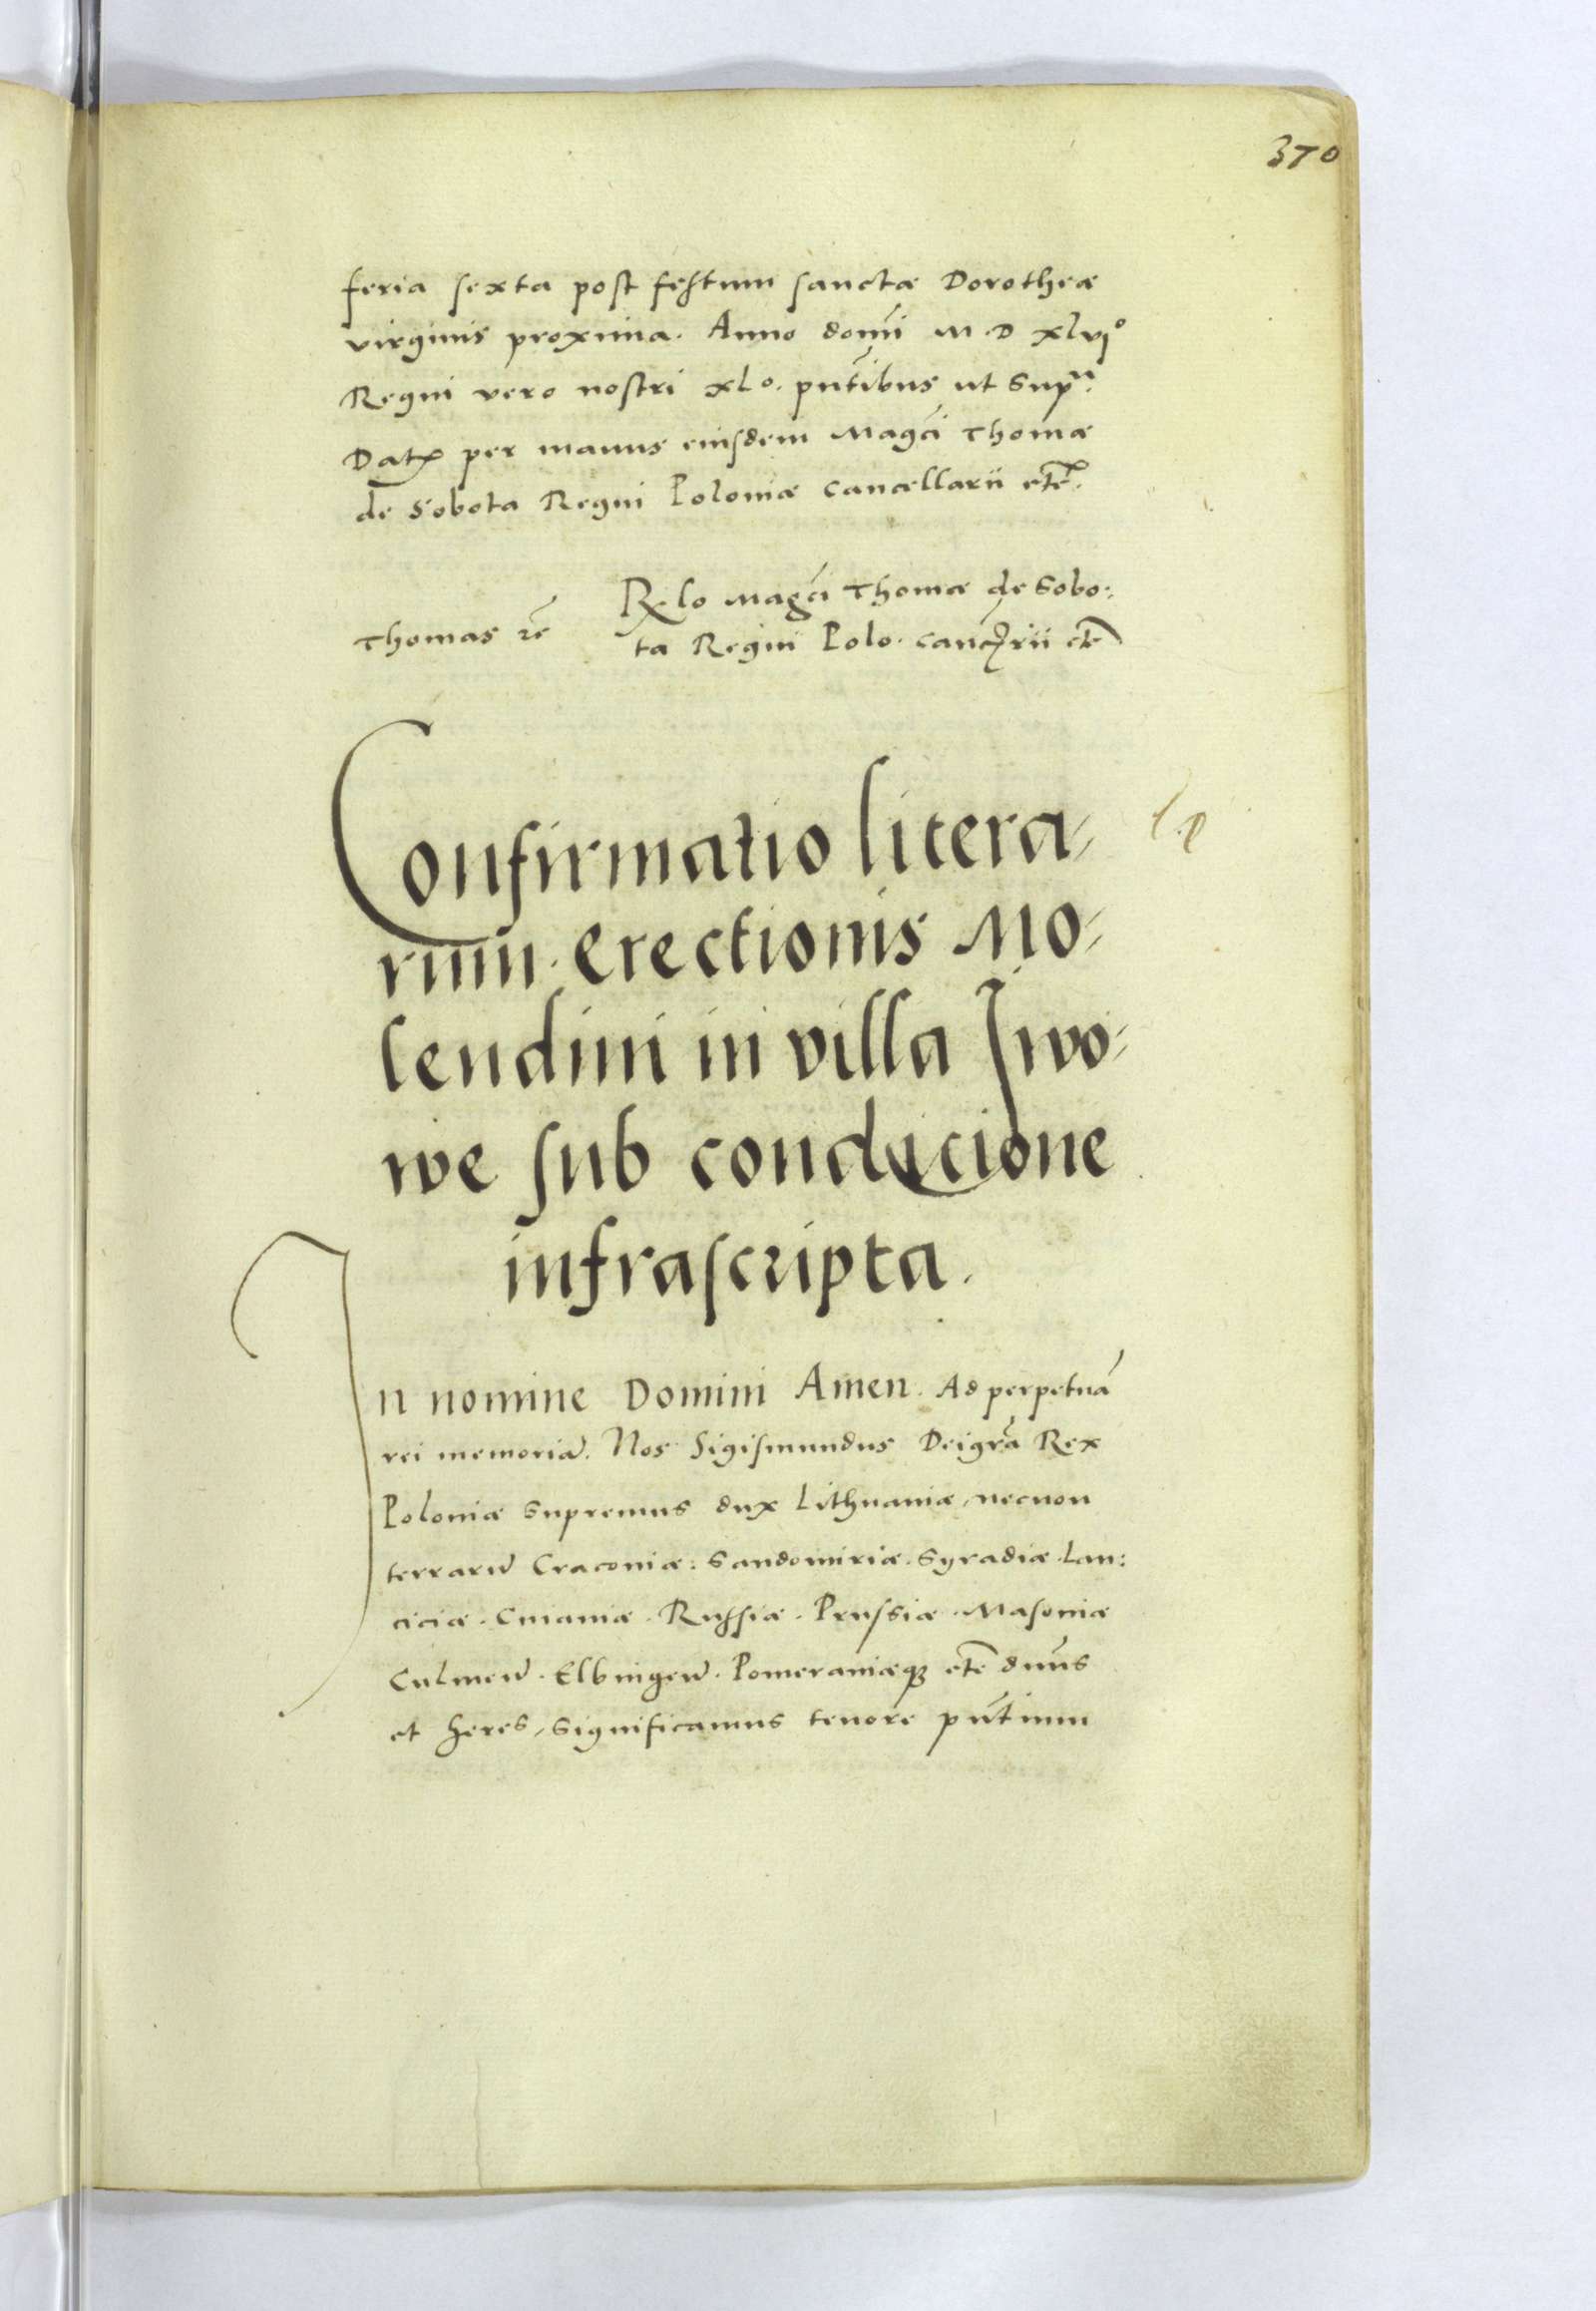 370
feria sexta post festum sanctæ Dorotheæ
virginis proxima. Anno domī M. D xlvi°
Regni vero nostri xlo. pn̄tibus ut Supª.
Datꝝ per manus eiusdem Magci Thomæ
de Sobota Regni Poloniæ cancellarii etc̄.
Rx lo Magci Thomæ de Sobo:
Thomas rē
ta Regni Polo. cancrii etc̄
Confirmatio litera-
rum. Erectionis Mo-
lendini in villa Iwo-
we sub condicione
infrascripta.
In nomine Domini Amen. Ad perpetuā
rei memoriā. Nos Sigismundus Dei grā Rex
Poloniæ Supremus dux Lithuaniæ, necnon
terrarū Cracoviæ: Sandomiriæ. Syradiæ. Lan:
ciciæ. Cuiaviæ. Russiæ. Prussiæ. Masoviæ
Culmeñ. Elbingeñ. Pomeraniæqꝫ etc̄ dn̄s
et heres, Significamus tenore pn̄tium